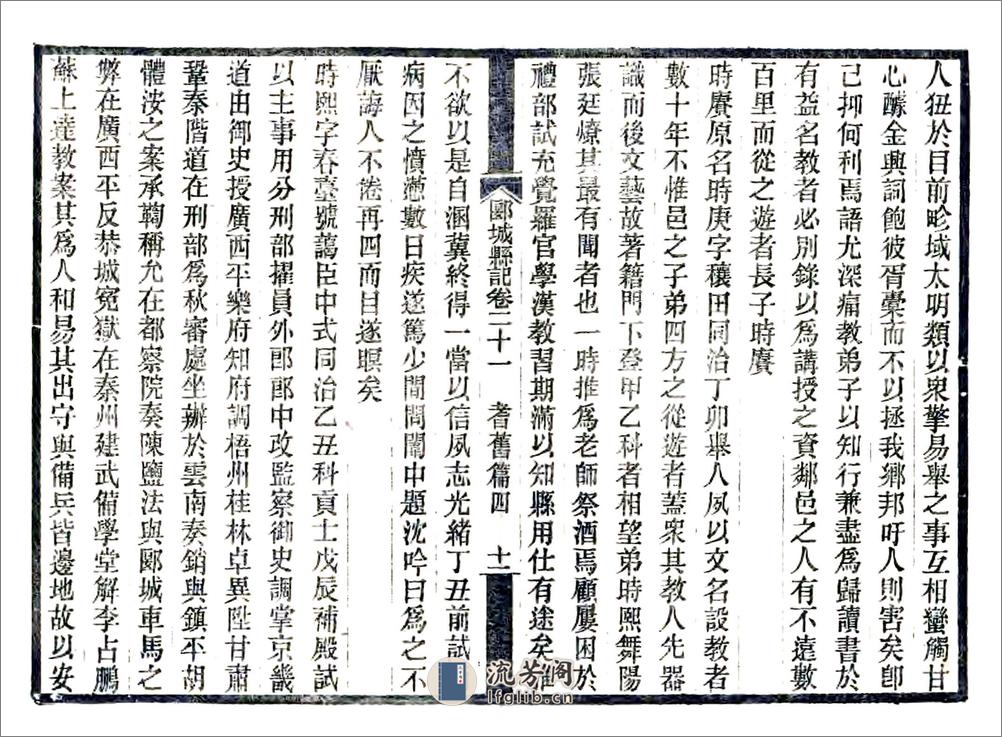 人狃於目前畛域太明類以衆擎易舉之事互相蠻觸甘
心醵金興詞飽彼胥橐而不以拯我鄉邦吁人則害矣卽
己抑何利焉語尤深痛教弟子以知行兼盡爲歸讀書於
有益名教者必別錄以爲講授之資鄰邑之人有不遠數
百里而從之遊者長子時賡
時賡原名時庚字穰田同治丁卯舉人夙以文名設教者
數十年不惟邑之子弟四方之從遊者蓋衆其教人先器
識而後文藝故著籍門下登甲乙科者相望弟時熙舞陽
張延燎其最有聞者也一時推爲老師祭酒焉顧屢困於
禮部試充覺羅官學漢教習期滿以知縣用仕有途矣雅
郾城縣記卷二十一 耆舊篇四 十一
不欲以是自溷冀終得一當以信夙志光緒丁丑前試
病因之憤懣數日疾遂篤少閒問闈中題沈吟曰爲之不
厭誨人不倦再四而目遂瞑矣
時熙字春臺號藹臣中式同治乙丑科貢士戊辰補殿試
以主事用分刑部擢員外郎郎中改監察御史調掌京畿
道由御史授廣西平樂府知府調梧州桂林卓異陞甘肅
鞏秦階道在刑部爲秋審處坐辦於雲南奏銷與鎮平胡
體洝之案承鞫稱允在都察院奏陳鹽法與郾城車馬之
弊在廣西平反恭城冤獄在秦州建武備學堂解李占鵬
蘇上達教案其爲人和易其出守與備兵皆邊地故以安
流芳閣
lfglib.cn